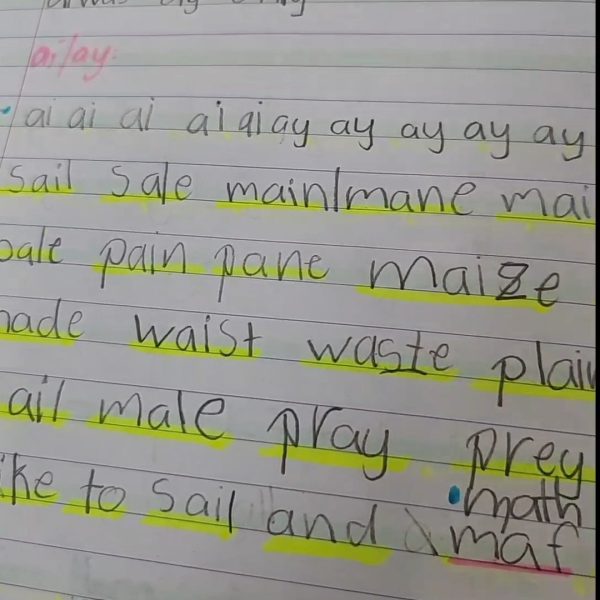 ai/ay:
ai ai ai ai ai ay ay ay ay ay
sail sale main/mane mai
pale pain pane maize
made waist waste plain
ail male pray prey
ike to sail and
math
maf